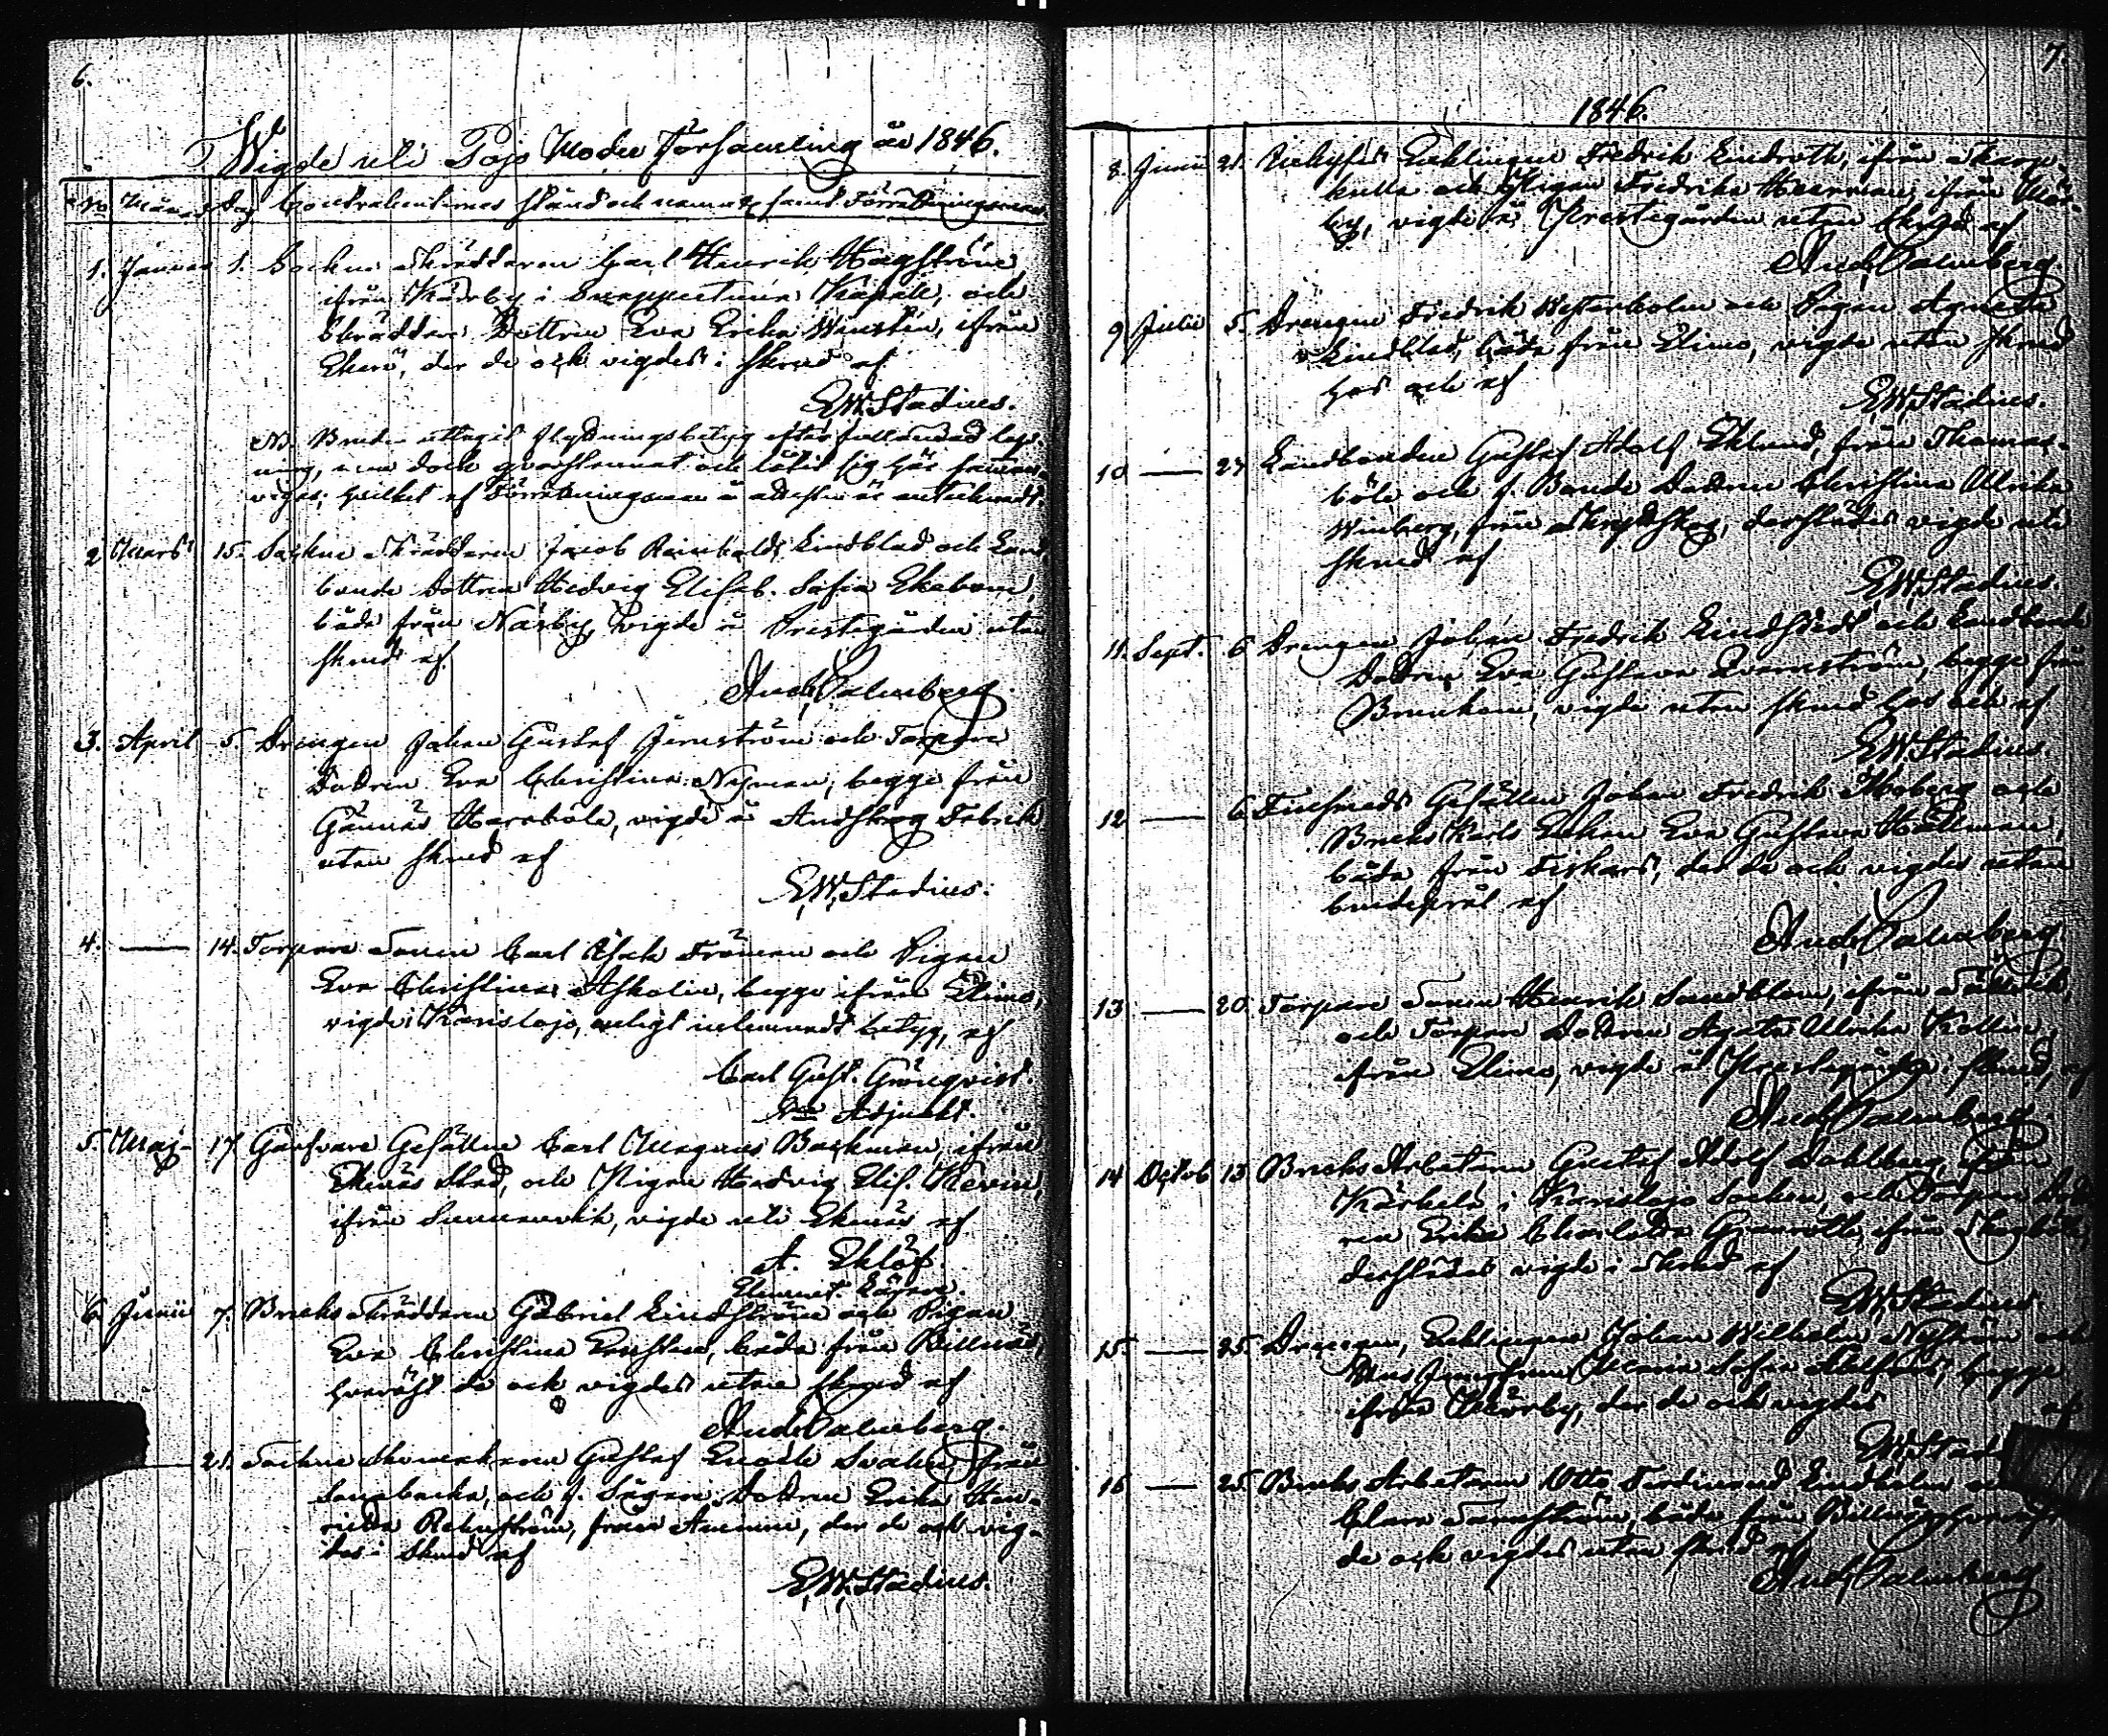 6.
Wigde uti Pojo Moder Församling år 1846.
No Månad Dag Contrahenternas stånd och namn samt Förrättningsman
1. Januar 1. Sockne Skräddaren Carl Henrik Hagström
ifrån i Snappertuna Kapell, och
Skräddare Dottren Eva Erika Winstén, ifrån
Ekerö, der de ock vigdes i skrud af
E.W. Stadius.
NB. Bruden uttagit flyttningsbetyg efter
ning, men dock qvarstannat och låtit sig här samman
vigas; hvilket af Förrättningsman å attesten är antecknadt
2 Mars 15. Sockne Skräddaren Jacob Reinhold Lindblad och Land
bonde Dottren Hedvig Elisab. Sofia Ekebom,
både från Näsby, vigde å Prestegården utan
skrud af
And. Palmberg
3. April 5. Drengen Johan Gustaf Jernström och Torpare
Dottren Eva Christina Nyman, begge från
Gännäs Harabôle, vigde å Antskog Fabrik
utan skrud af
E.W. Stadius.
4. — 14. Torpare Sonen Carl Isak Fröman och Pigan
Eva Christina Asholin, begge ifrån Elimo,
vigde i Karislojo, enligt inlemnadt betyg, af
Carl Gust. Grönqvist.
Adjunkt.
5. Maj 17 Garfvare Gesällen Carl Magnus Backman, ifrån
Ekenäs Stad, och Pigan Hedvig Elis. Kevin,
ifrån Sunnanvik, vigde uti Ekenäs af
A. Eklöf.
Element. Lärare.
6 Junii 7. Bruks Skräddaren Gabriel Lindström och Pigan
Eva Christina, båda från Billnäs,
hvaräst de ock vigdes utan skrud af
And. Palmberg.
— 21. Sockne Skomakaren Gustaf Enoch Svahn, från
Sonabacka, och f. Sågare Dottren Erika Hen-
rietta Rehnström, från Åminne, der de ock vig-
des i skrud af
E.W. Stadius.
7.
1846.
8. Junii 21. Enklingen Fredrik Lindroth, ifrån Skarp-
kulla och Pigan Fredrika Heerman, ifrån Mör-
by, vigde å Prestegården utan skrud af
And. Palmberg.
9 Julii 5. Drengen Fredrik Westerholm och Pigan Agneta
Lindblad, båda från Elimo, vigde utan skrud
hos och af
E.W. Stadius.
10 — 24 Landbonden Gustaf Adolf Eklund, från Thomas-
böle och f. Bonde Dottren Christina Ulrika
Winberg, från, derstädes vigde uti
skrud af
E.W. Stadius.
11. Sept. 6 Drengen Johan Fredrik Lindstedt och Landbonde
Dottren Eva Gustava Qvarnström, begge från
Brunkom, vigde utan skrud hos och af
E.W. Stadius.
12 — 6 Finsmeds Gesällen Johan Fredrik Moberg och
Bruks Karls Enkan Eva Gustava Hallman,
båda från Fiskars, der de ock vigdes utan
brudeprål af
And. Palmberg
13 — 20. Torpare Sonen Henrik Sandblom, ifrån
och Torpare Dottren Agata Ulrika Kollin,
ifrån Elimo, vigde å Prestegården i skrud, af
And. Palmberg
14 Octob 13 Bruks Arbetaren Gustaf Adolf Dahlberg, ifrån
Kärkelä i Karislojo Socken, och Torpare Dott
ren Erika Charlotta Granroth, ifrån
derstädes vigde i skrud af
E.W. Stadius.
15. — 25. Drengen, Enklingen Johan Wilhelm Nyström och
Hus Jungfrun Maria Sofia, begge
ifrån, der de ock vigdes af
E.W. Stad
16 — 25. Bruks Arbetaren Otto Ferdinand Lindholm
Clara, båda från Billnäs, hvaräst
de ock vigdes utan skrud af
And. Palmberg